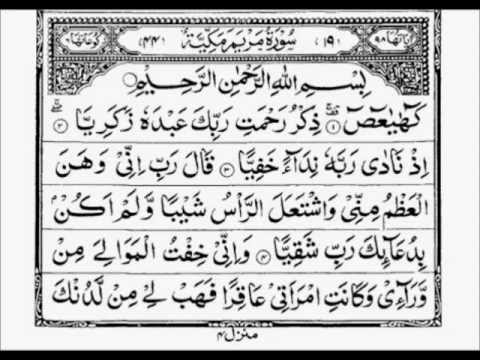 اٰيَاتُهَا ٩٨ (١٩) سُوْرَةُ مَرْيَمَ مَكِّيَّةٌ (٤٤) رُكُوْعَاتُهَا ٦
بِسْمِ اللّٰهِ الرَّحْمٰنِ الرَّحِيْمِ
كٓهٰيٰعٓصٓ ۚ‏﴿۱﴾ ذِكْرُ رَحْمَتِ رَبِّكَ عَبْدَهٗ زَكَرِيَّا ﴿۲﴾
اِذْ نَادٰى رَبَّهٗ نِدَآءً خَفِيًّا ﴿۳﴾ قَالَ رَبِّ اِنِّىْ وَهَنَ
الْعَظْمُ مِنِّىْ وَاشْتَعَلَ الرَّاْسُ شَيْبًا وَّلَمْ اَكُنْۢ
بِدُعَآئِكَ رَبِّ شَقِيًّا ﴿۴﴾ وَاِنِّىْ خِفْتُ الْمَوَالِىَ مِنْ
وَّرَآءِىْ وَكَانَتِ امْرَاَتِىْ عَاقِرًا فَهَبْ لِىْ مِنْ لَّدُنْكَ
منزل ۴